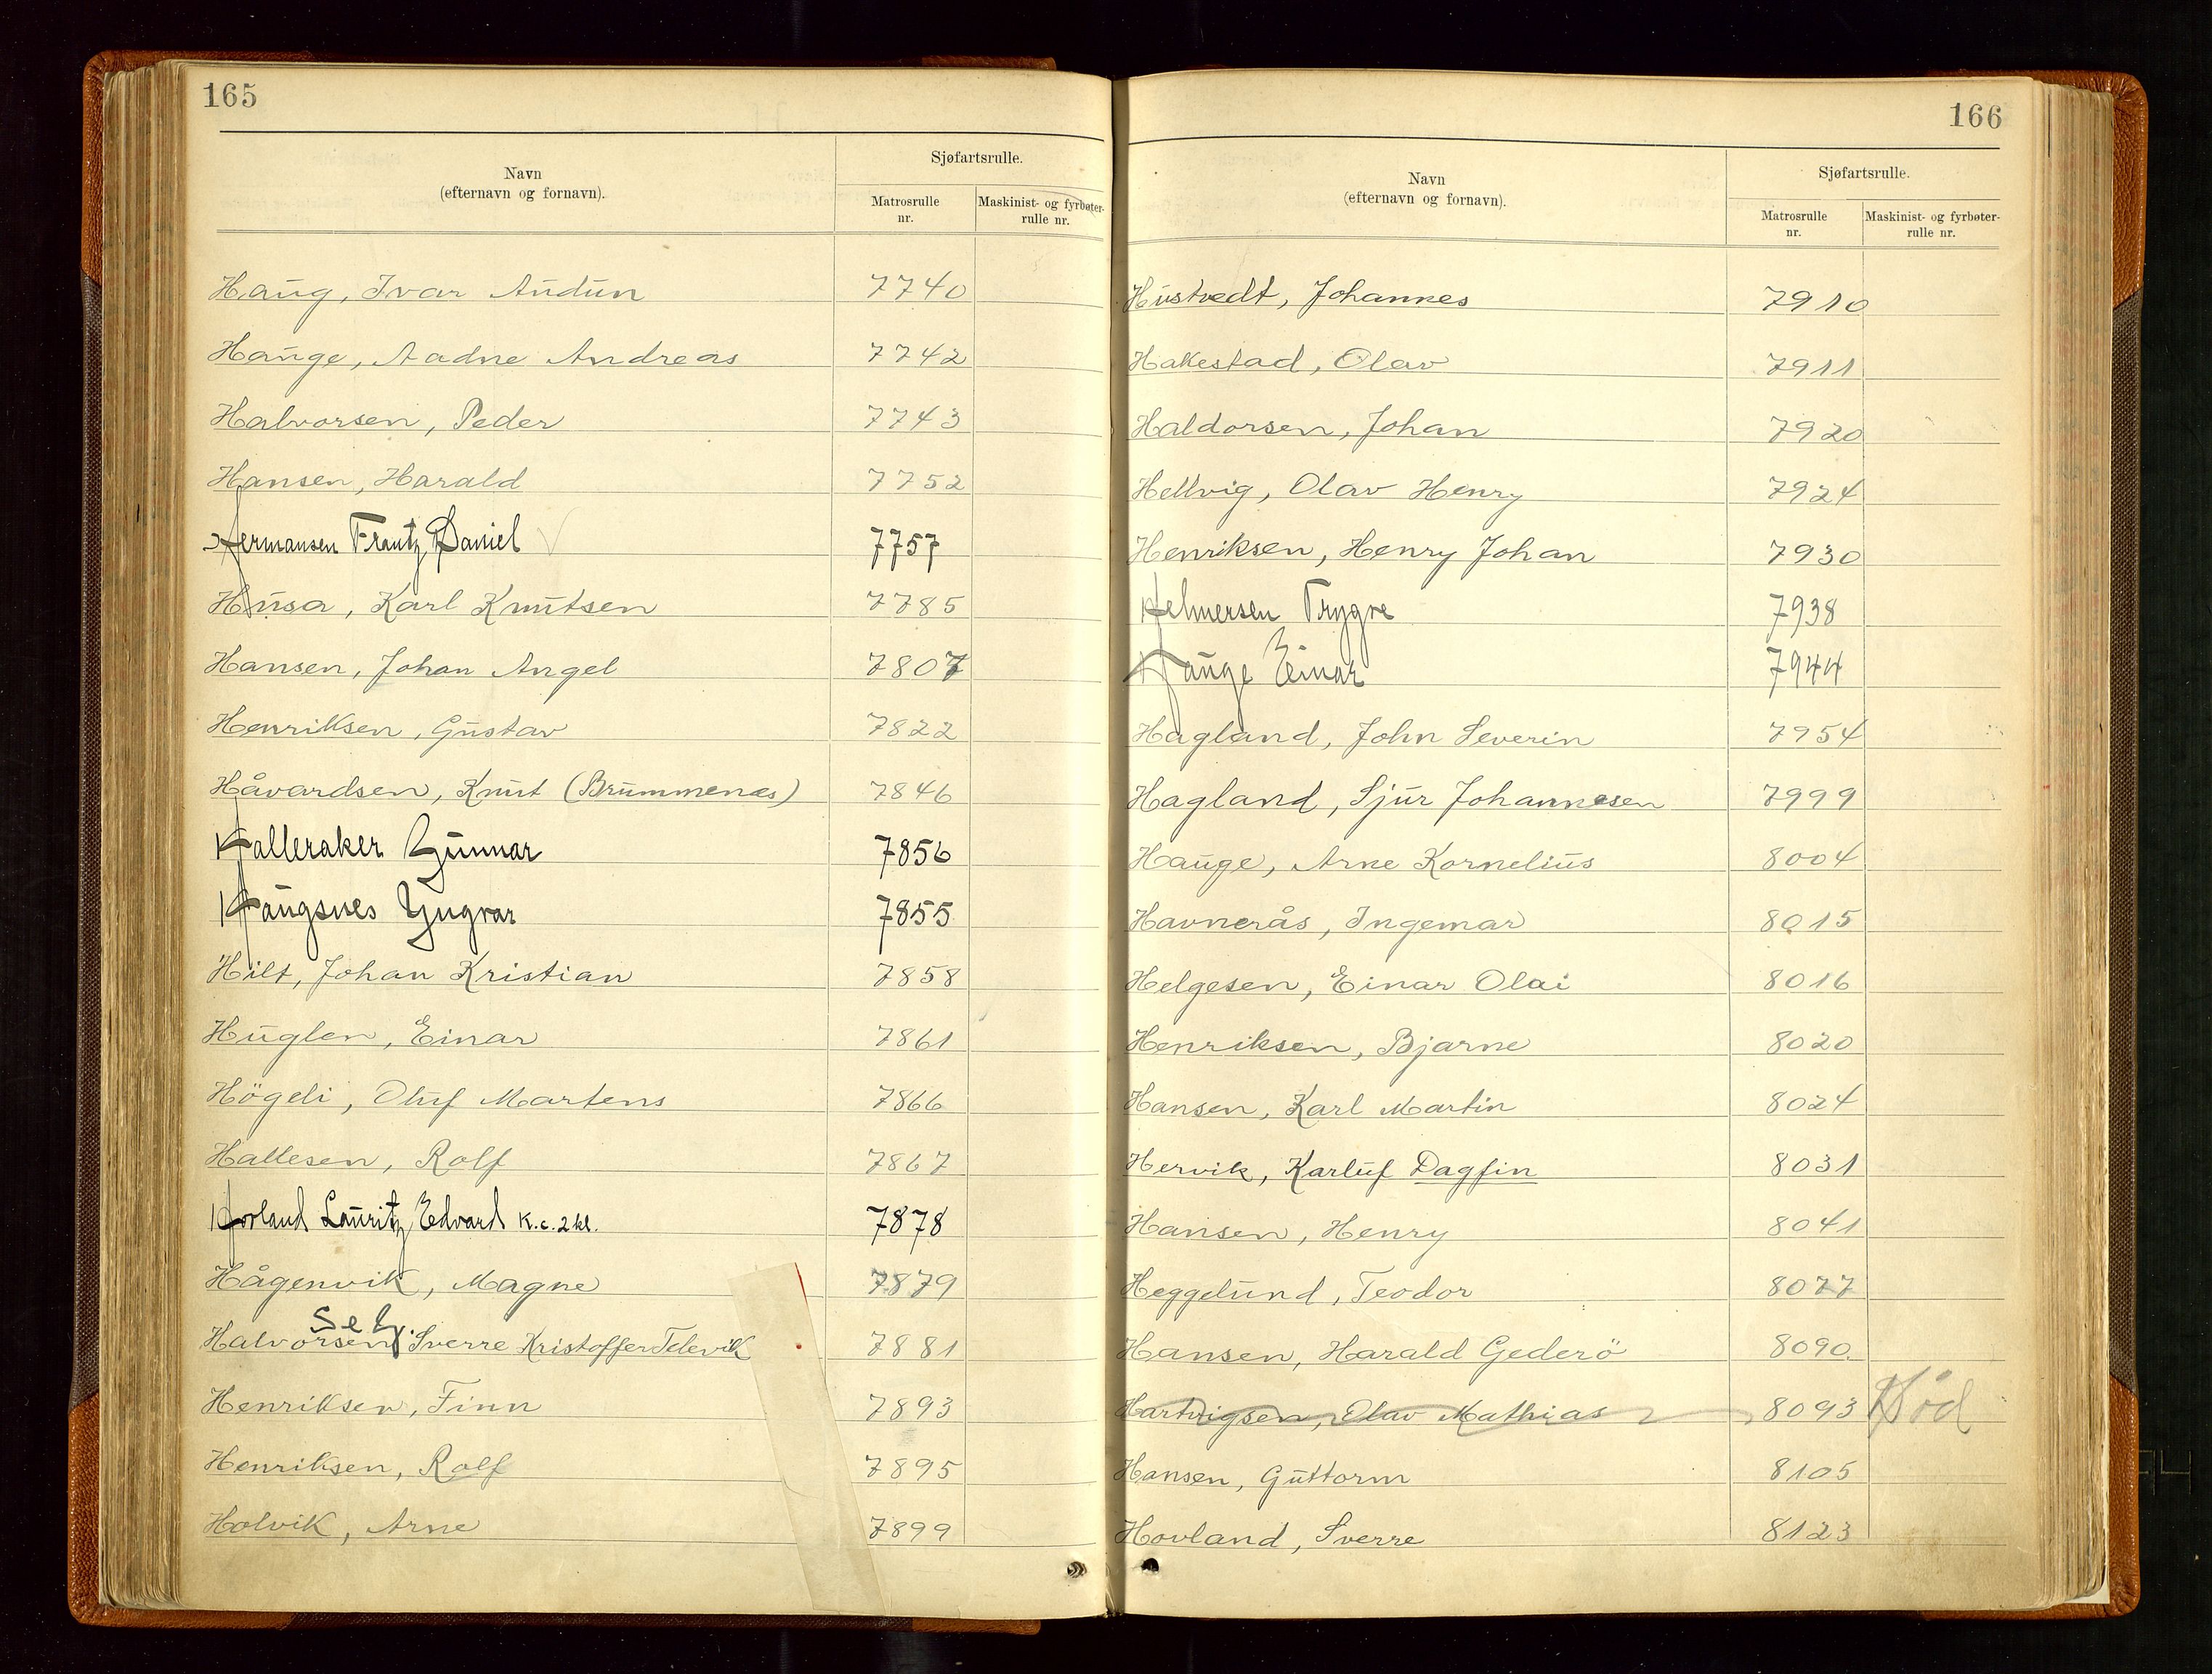 165
Navn
(efternavn og fornavn).
Sjøfartsrulle.
Matrosrulle nr.
Maskinist- og fyrbøter-rulle nr.
Haug, Ivar Audun 7740
Hauge, Aadne Andreas 7742
Halvorsen, Peder 7743
Hansen, Harald 7752
Hermansen Frantz Daniel 7757
Husa, Karl Knutsen 7785
Hansen, Johan Angel 7807
Henriksen, Gustav 7822
Håvardsen, Knut (Brummenæs) 7846
Halleraker Gunnar 7856
Haugsnes Yngvar 7855
Hilt, Johan Kristian 7858
Huglen, Einar 7861
Högeli, Oluf Martens 7866
Hallesen, Rolf 7867
Hovland Lauritz Edvard K.c. 2kl. 7878
Hågenvik, Magne 7879
Se
Halvorsen, Sverre Kristoffer Televik 7881
Henriksen, Finn 7893
Henriksen, Rolf 7895
Holvik, Arne 7899
166
Navn
(efternavn og fornavn).
Sjøfartsrulle.
Matrosrulle nr.
Maskinist- og fyrbøter-rulle nr.
Hustvedt, Johannes 7910
Hakestad, Olav 7911
Haldorsen, Johan 7920
Hellvig, Olav Henry 7924
Henriksen, Henry Johan 7930
Helmersen Trygve 7938
Hauge Einar 7944
Hagland, John Severin 7954
Hagland, Sjur Johannesen 7999
Hauge, Arne Kornelius 8004
Havnerås, Ingemar 8015
Helgesen, Einar Olai 8016
Henriksen, Bjarne 8020
Hansen, Karl Martin 8024
Hervik, Karluf Dagfin 8031
Hansen, Henry 8041
Heggelund, Teodor 8077
Hansen, Harald Gederö 8090
Hartvigsen, Olav Mathias 8093 Død
Hansen, Guttorm 8105
Hovland, Sverre 8123